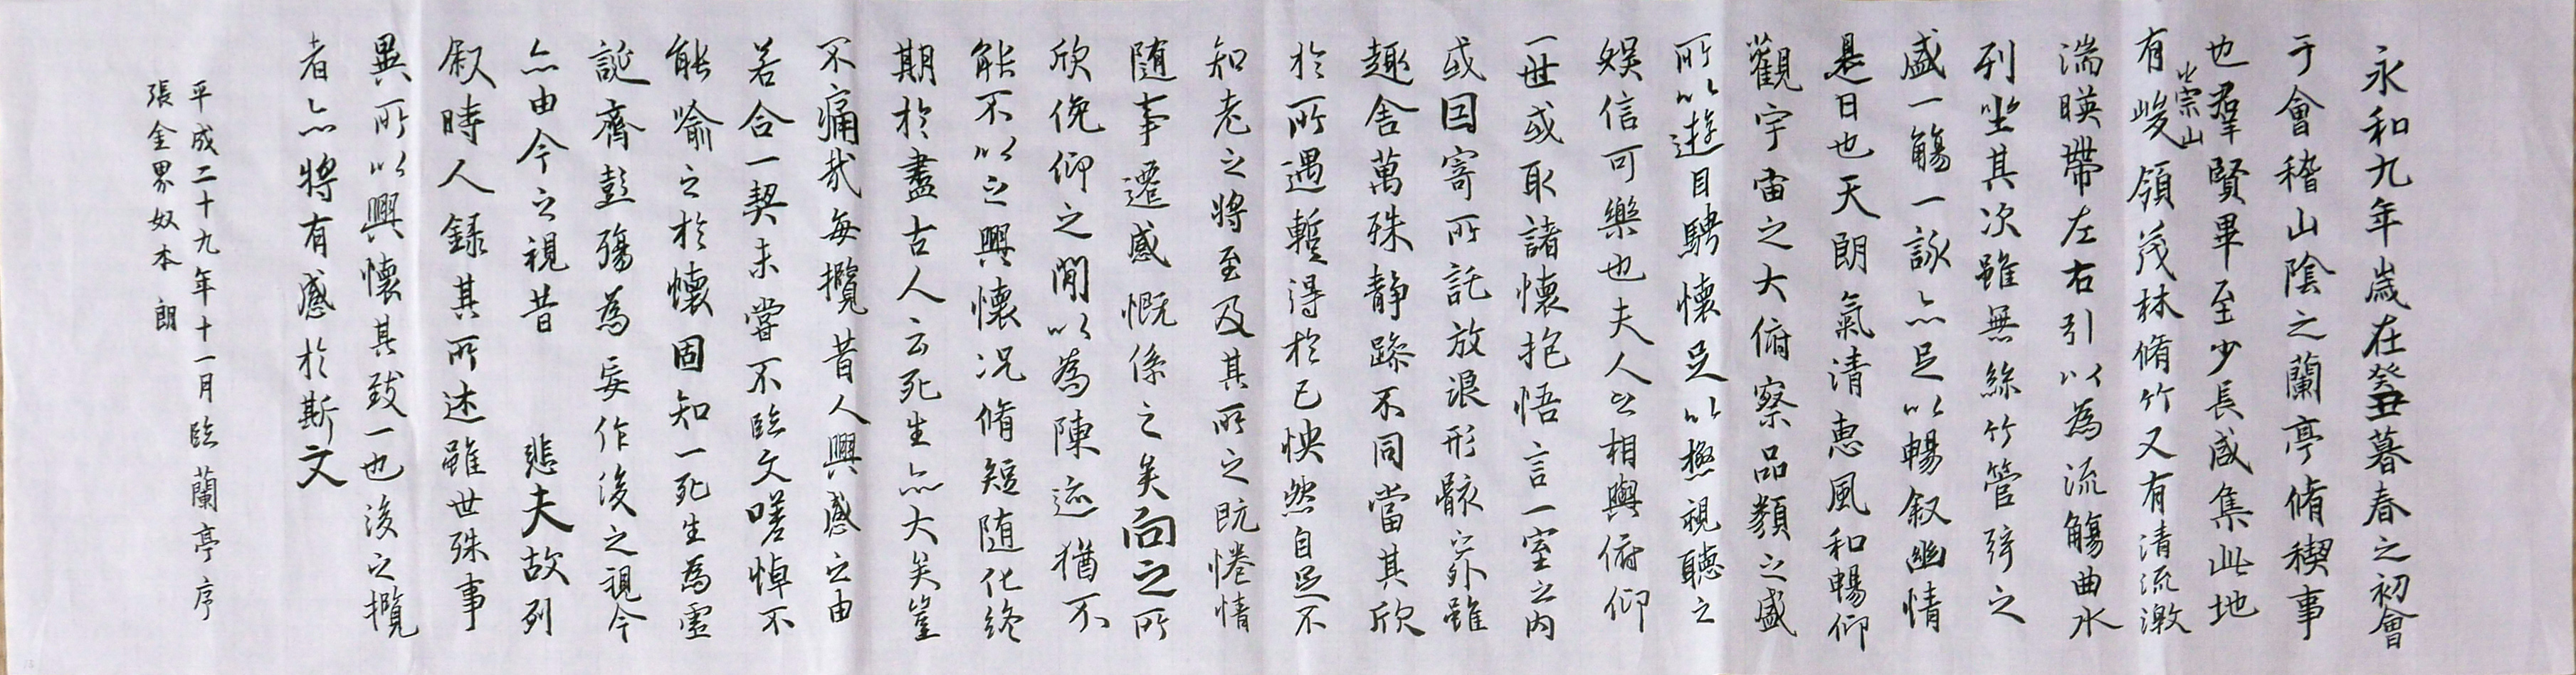 永和九年歲在癸丑暮春之初會
于會稽山陰之蘭亭脩稧事
也羣賢畢至少長咸集此地
崇山
有峻領茂林脩竹又有清流激
湍暎帶左右引以為流觴曲水
列坐其次雖無絲竹管弦之
盛一觴一詠亦足以暢叙幽情
是日也天朗氣清惠風和暢仰
觀宇宙之大俯察品類之盛
所以遊目騁懷足以極視聽之
娛信可樂也夫人之相與俯仰
一世或取諸懷抱悟言一室之內
或因寄所託放浪形骸之外雖
趣舍萬殊静躁不同當其欣
於所遇蹔得於己怏然自足不
知老之將至及其所之既惓情
随事遷感慨係之矣向之所
欣俛仰之閒以為陳迹猶不
能不以之興懷况脩短随化終
期於盡古人云死生亦大矣豈
不痛哉每攬昔人興感之由
若合一契未嘗不臨文嗟悼不
能喻之於懷固知一死生為虛
誕齊彭殤為妄作後之視今
亦由今之視昔 悲夫故列
叙時人録其所述雖世殊事
異所以興懷其致一也後之攬
者亦將有感於斯文
平成二十九年十一月 臨蘭亭序
張金界奴本 朗